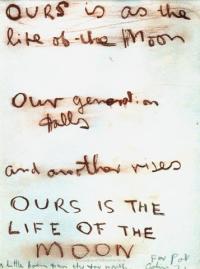 OURS is as the
life of the Moon
Our generation
falls
and another rises
OURS IS THE
LIFE OF THE
MOON
For Pat
a little